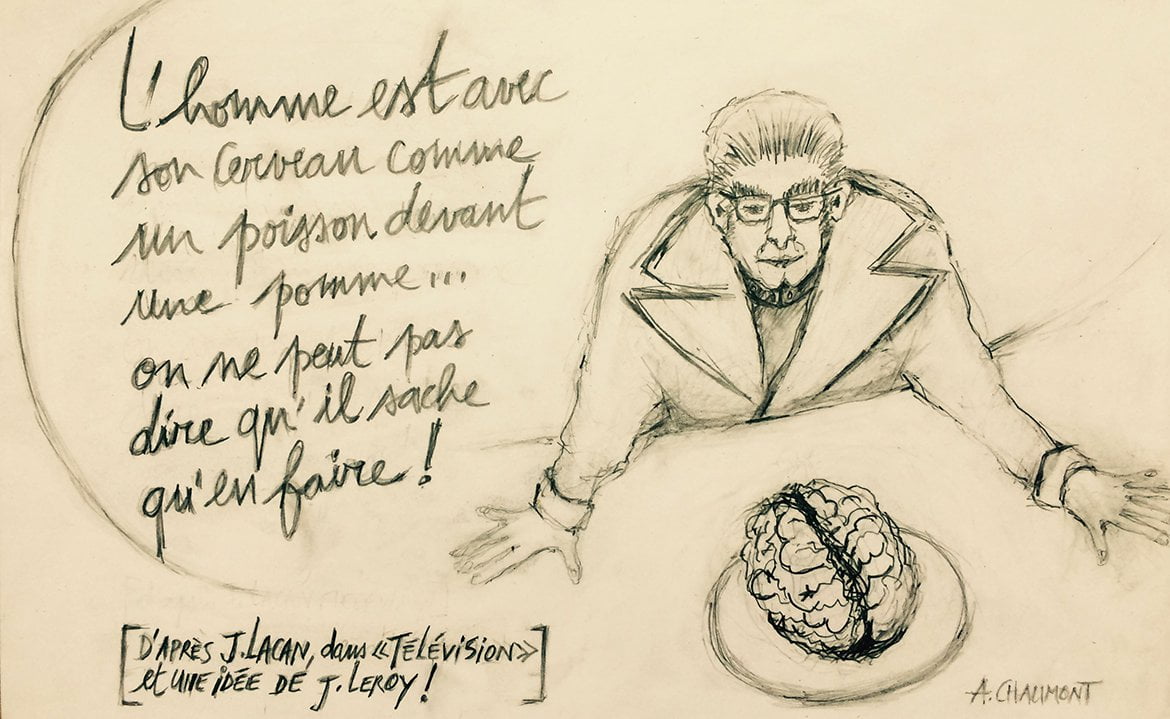 L'homme est avec
son cerveau comme
un poisson devant
une pomme...
on ne peut pas
dire qu'il sache
qu'en faire !
[D'APRÈS J. LACAN, dans «TÉLÉVISION»
et UNE IDÉE DE J. LEROY !]
A. CHAUMONT